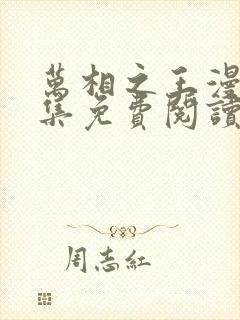 萬相之王漫
集免費閱讀
周志紅